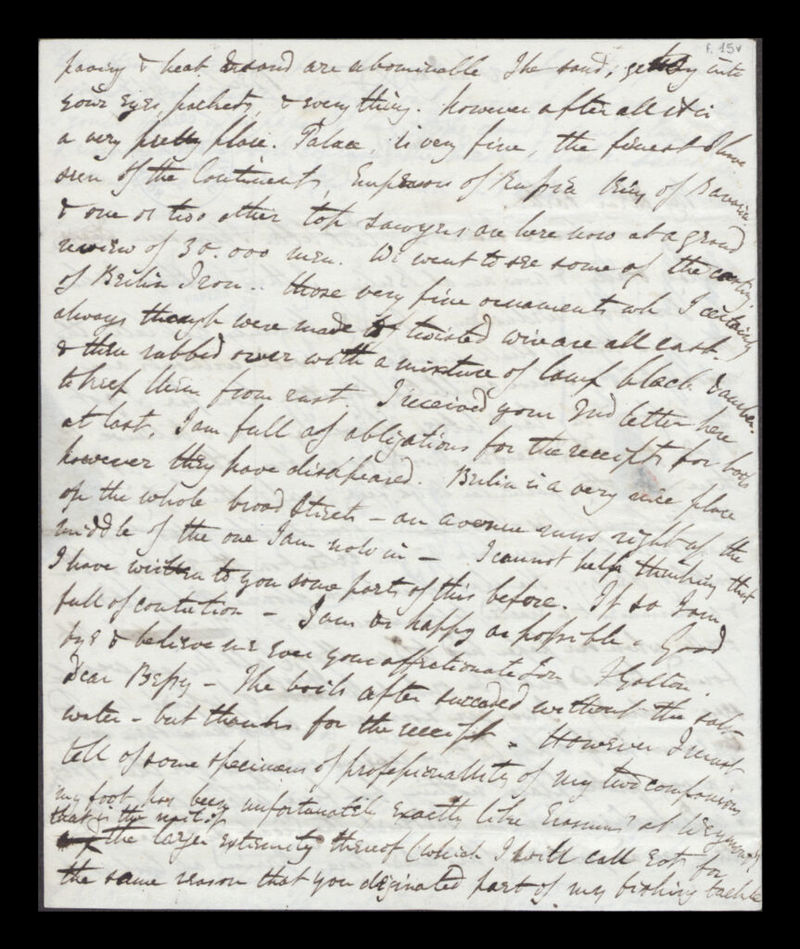 f. 15v
paving & heat & sand are abominable The sand, getting into
your eyes pockets, & everything. however after all it is
a very pretty place. Palace, is very fine, the finest I have
seen of the Continents, Emperor of Russia King of Bavaria
& one or two other top sawyers are here now at a grand
review of 30.000 men. We went to see some of the casting,
of Berlin Iron.. those very fine ornaments wh I certainly
always though were made of twisted wire are all cast.
& then rubbed over with a mixture of lamp black &
to keep them from rust I received your 2nd letter here
at last, I am full of obligations for the receipts for boils
however they have disappeared. Berlin is a very nice place
on the whole broad Streets – an avenue runs right up the
middle of the one I am now in – I cannot help thinking that
I have written to you some parts of this before. If so I am
full of contrition – I am as happy as possible. Good
bye & believe me ever your affectionate Son F Galton.
Dear Bessy – The boils after succeeded without the salt
water – but thanks for the receipt. However I must
tell of some specimens of professionallity of my two companions
my foot has been unfortunately exactly like Erasmus' at Weymouth
that is the most of
the larger extremity thereof (which I will call for
the same reason that you diginated part of my fishing tackle